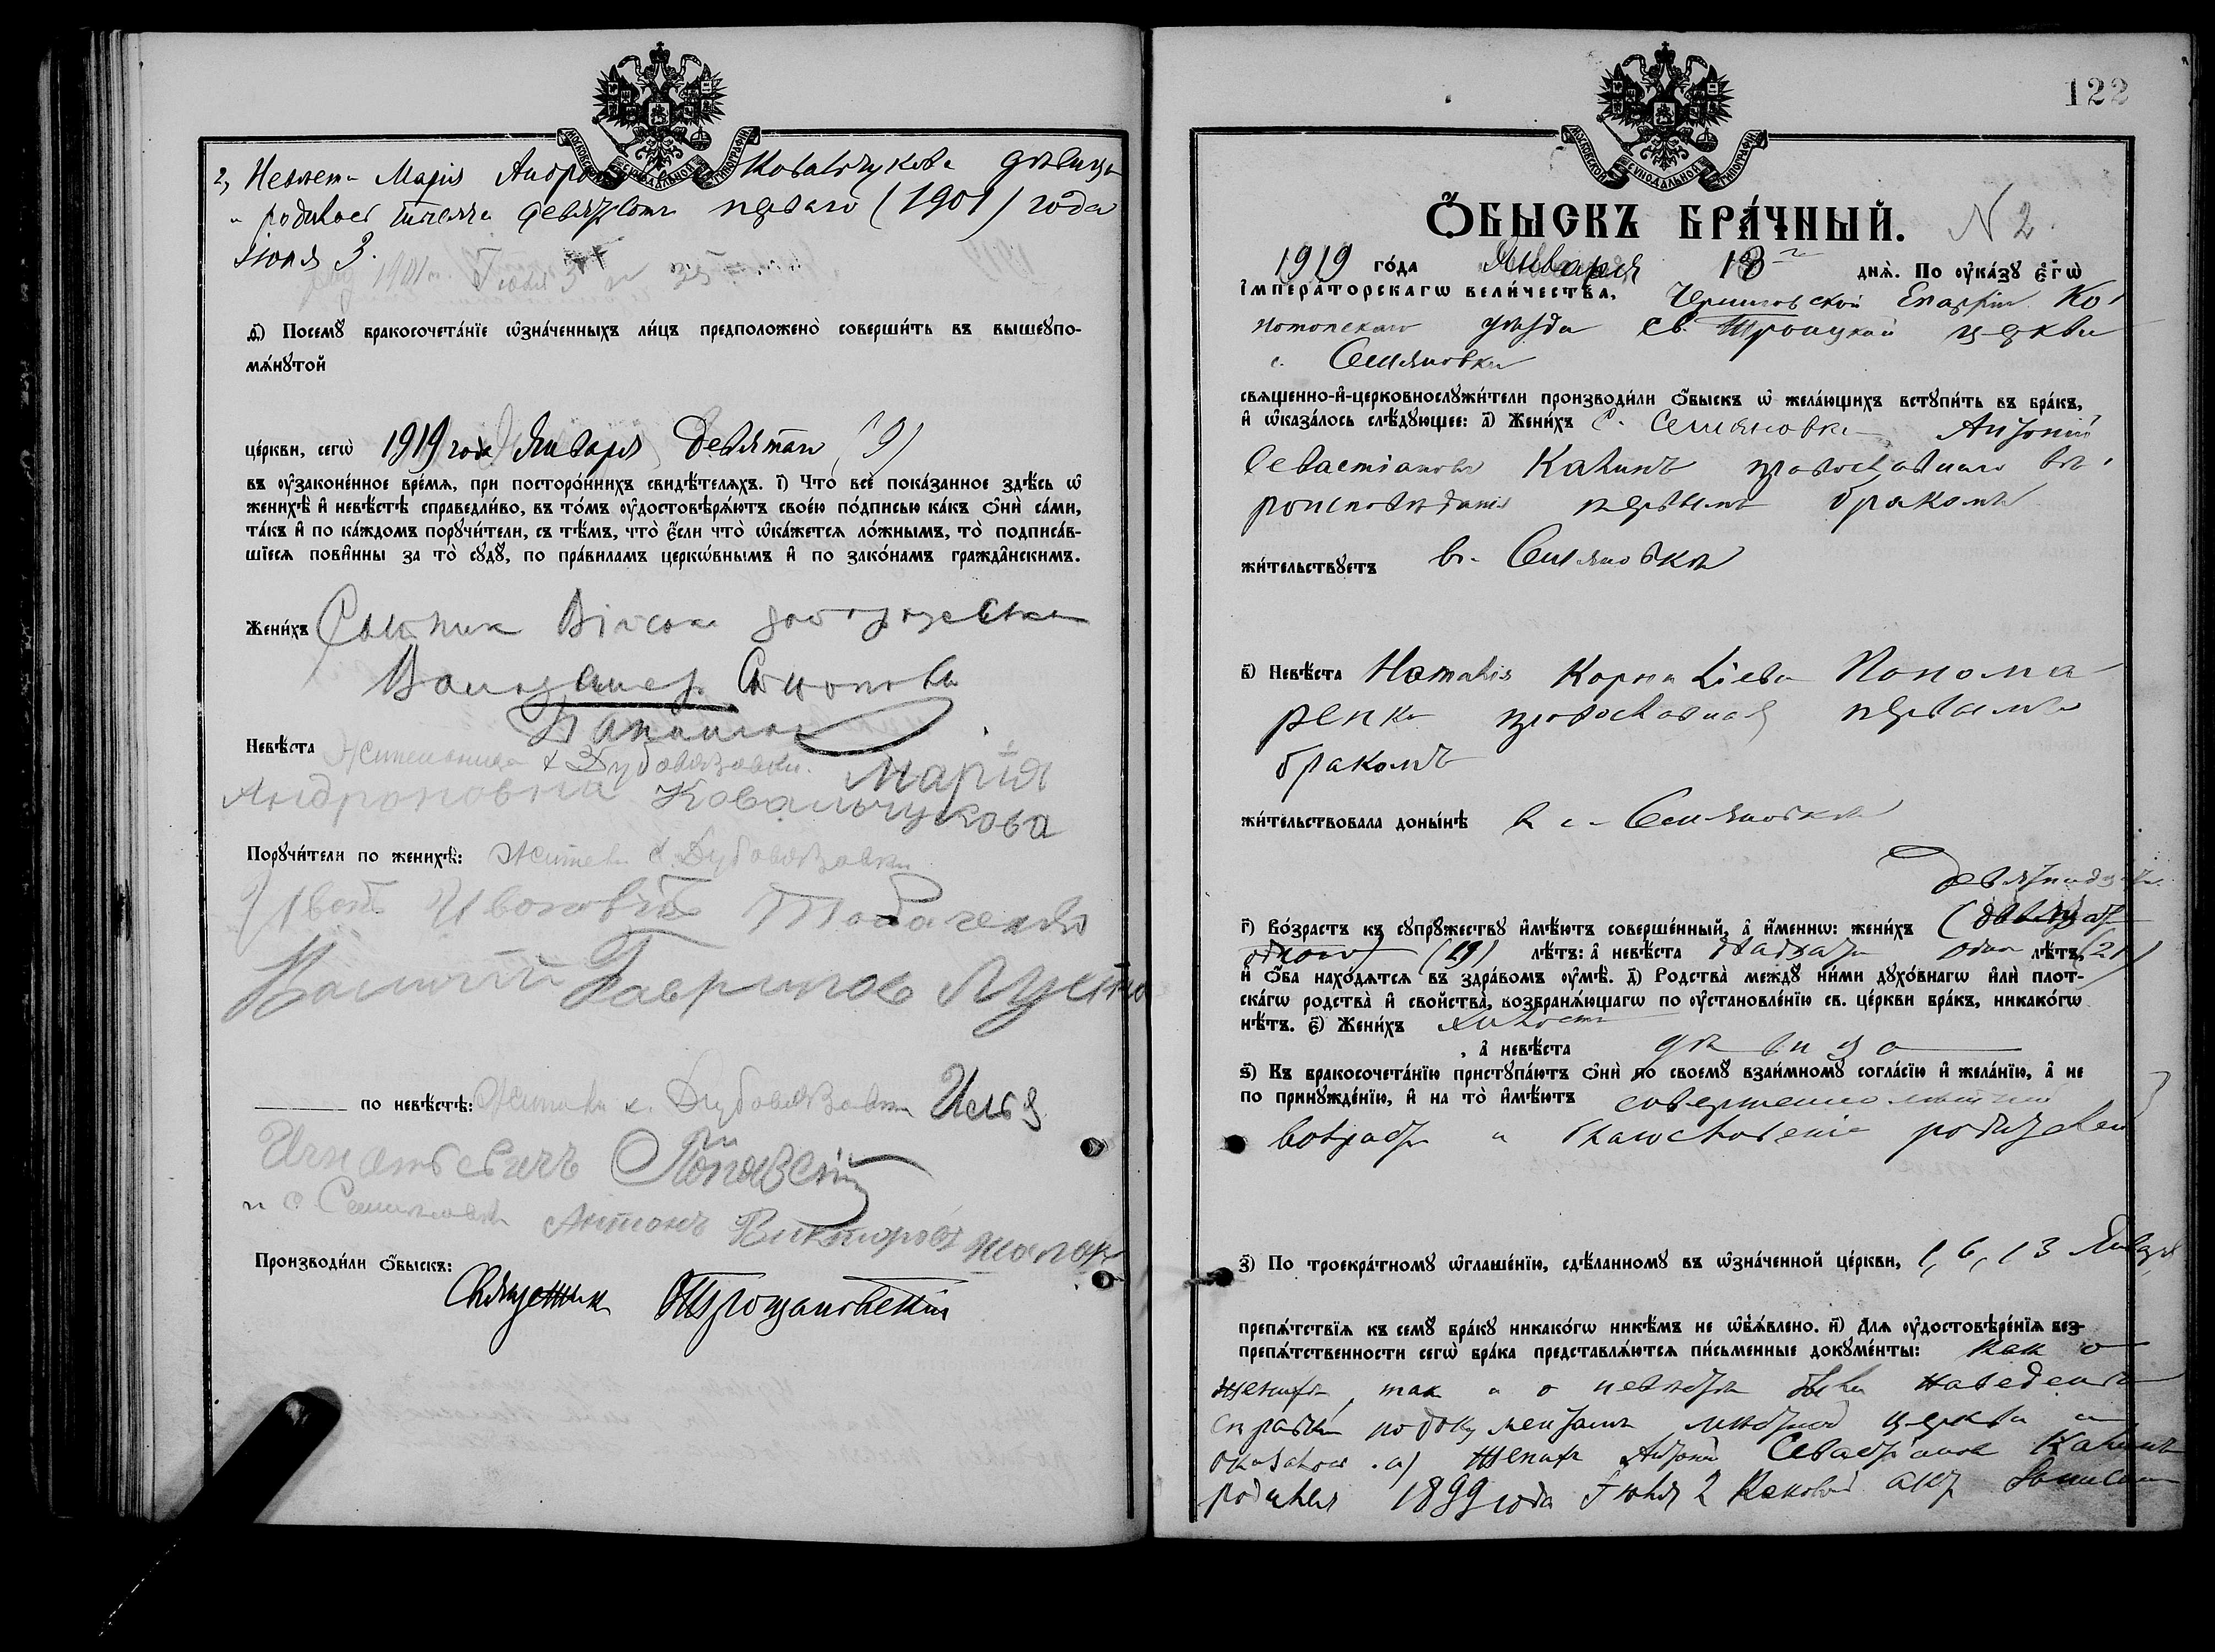 МОСКОВСКОЙ СѴНОДАЛЬНОЙ ТИПОГРАФІИ
2, Невѣста Марія Андро Ковальчукова дѣвица
и родилась тысяча девятьсотъ перваго (1901) года
Іюня 3.
д҃і) Посемꙋ бракосочета́нїе ѡ҆зна́ченныхъ ли́цъ предположено̀ соверши́ть въ вышеꙋпо-
мѧ́нꙋтой
це́ркви, сегѡ̀ 1919 года Января Девятаго (9)
въ ᲂу҆зако́ненное вре́мѧ, при посторо́ннихъ свидѣ́телѧхъ. і҃) Что̀ всѐ пока́занное здѣ́сь ѡ҆
женихѣ̀ и҆ невѣ́стѣ справедли́во, въ то́мъ ᲂу҆достовѣрѧ́ютъ свое́ю по́дписью ка́къ ѻ҆нѝ са́ми,
та́къ и҆ по ка́ждомъ порꙋчи́тели, съ тѣ́мъ, что̀ є҆́сли что̀ ѡ҆ка́жется ло́жнымъ, то̀ подписа́в-
шїеся пови́нны за то̀ сꙋдꙋ̀, по пра́виламъ церкѡ́внымъ и҆ по зако́намъ гражда́нскимъ.
Жени́хъ Сотник Війска
Володимер
Невѣ́ста Жительница с. Дубовязовки. Марія
Андроновна Ковальчукова
Порꙋчи́тели по женихѣ̀: Житель с. Дубовязовки
Иванъ Ивановичъ
Василій Гаврилов
по невѣ́стѣ: с. Дубовязовки Илья
Игнатьевичъ
и с Семяновки Антонъ Викторовъ
Производи́ли ѻ҆́быскъ:
Священник
122
МОСКОВСКОЙ СѴНОДАЛЬНОЙ ТИПОГРАФІИ
Ѻ҆́БЫСКЪ БРА́ЧНЫЙ. N 2.
1919 го́да Января 13 днѧ̀. По ᲂу҆ка́зꙋ є҆гѡ̀
і҆мпера́торскагѡ вели́чества, Черниговской Епархіи Ко
нотопскаго уѣзда Св. Троицкой церкви
с. Семяновки
свѧщенно-и҆-церковнослꙋжи́тели производи́ли ѻ҆́быскъ ѡ҆ жела́ющихъ встꙋпи́ть въ бра́къ,
и҆ ѡ҆каза́лось слѣ́дꙋющее: а҃) Жени́хъ с. Семяновки Антоній
Севастіановъ Калинъ православнаго вѣ
роисповѣданія первымъ бракомъ
жи́тельствꙋетъ въ Семяновкѣ
в҃) Невѣ́ста Наталія Корниліева Понома
ренко православная первымъ
бракомъ
жи́тельствовала доны́нѣ въ с. Семяновкѣ
Девятнадцати
г҃) Во́зрастъ къ сꙋпрꙋ́жествꙋ и҆мѣ́ютъ соверше́нный, а҆ и҆́меннѡ: жени́хъ
(19) лѣ́тъ: а҆ невѣ́ста двадцати одно лѣ́тъ (21)
и҆ ѻ҆́ба нахо́дѧтся въ здра́вомъ ᲂу҆мѣ̀. д҃) Родства̀ междꙋ̀ ни́ми дꙋхо́внагѡ и҆лѝ плот-
ска́гѡ родства̀ и҆ свойства̀, возбранѧ́ющагѡ по ᲂу҆становле́нїю св. це́ркви бра́къ, никако́гѡ
нѣ́тъ. є҃) Жени́хъ холостъ
, а҆ невѣ́ста дѣвица
ѕ҃) Къ бракосочета́нїю пристꙋпа́ютъ ѻ҆нѝ по своемꙋ̀ взаи́мномꙋ согла́сїю и҆ жела́нїю, а҆ не
по принꙋжде́нїю, и҆ на то̀ и҆мѣ́ютъ совершеннолѣтній
возрастъ и благословеніе родителей
з҃) По троекра́тномꙋ ѡ҆глаше́нїю, сдѣ́ланномꙋ въ ѡ҆зна́ченной це́ркви, 1, 6, 13 Января
препѧ́тствїѧ къ семꙋ̀ бра́кꙋ никако́гѡ никѣ́мъ не ѡ҆б̾ѧ́влено. и҃) Длѧ ᲂу҆достовѣре́нїѧ без-
препѧ́тственности сегѡ̀ бра́ка представлѧ́ются пи́сьменные докꙋме́нты: как о
женихѣ, так и о невѣстѣ были наведены
справки по документамъ мѣстной церкви и
оказалось. а) Женихъ Антоній Севастіановъ Калинъ
родился 1899 года Іюля 2